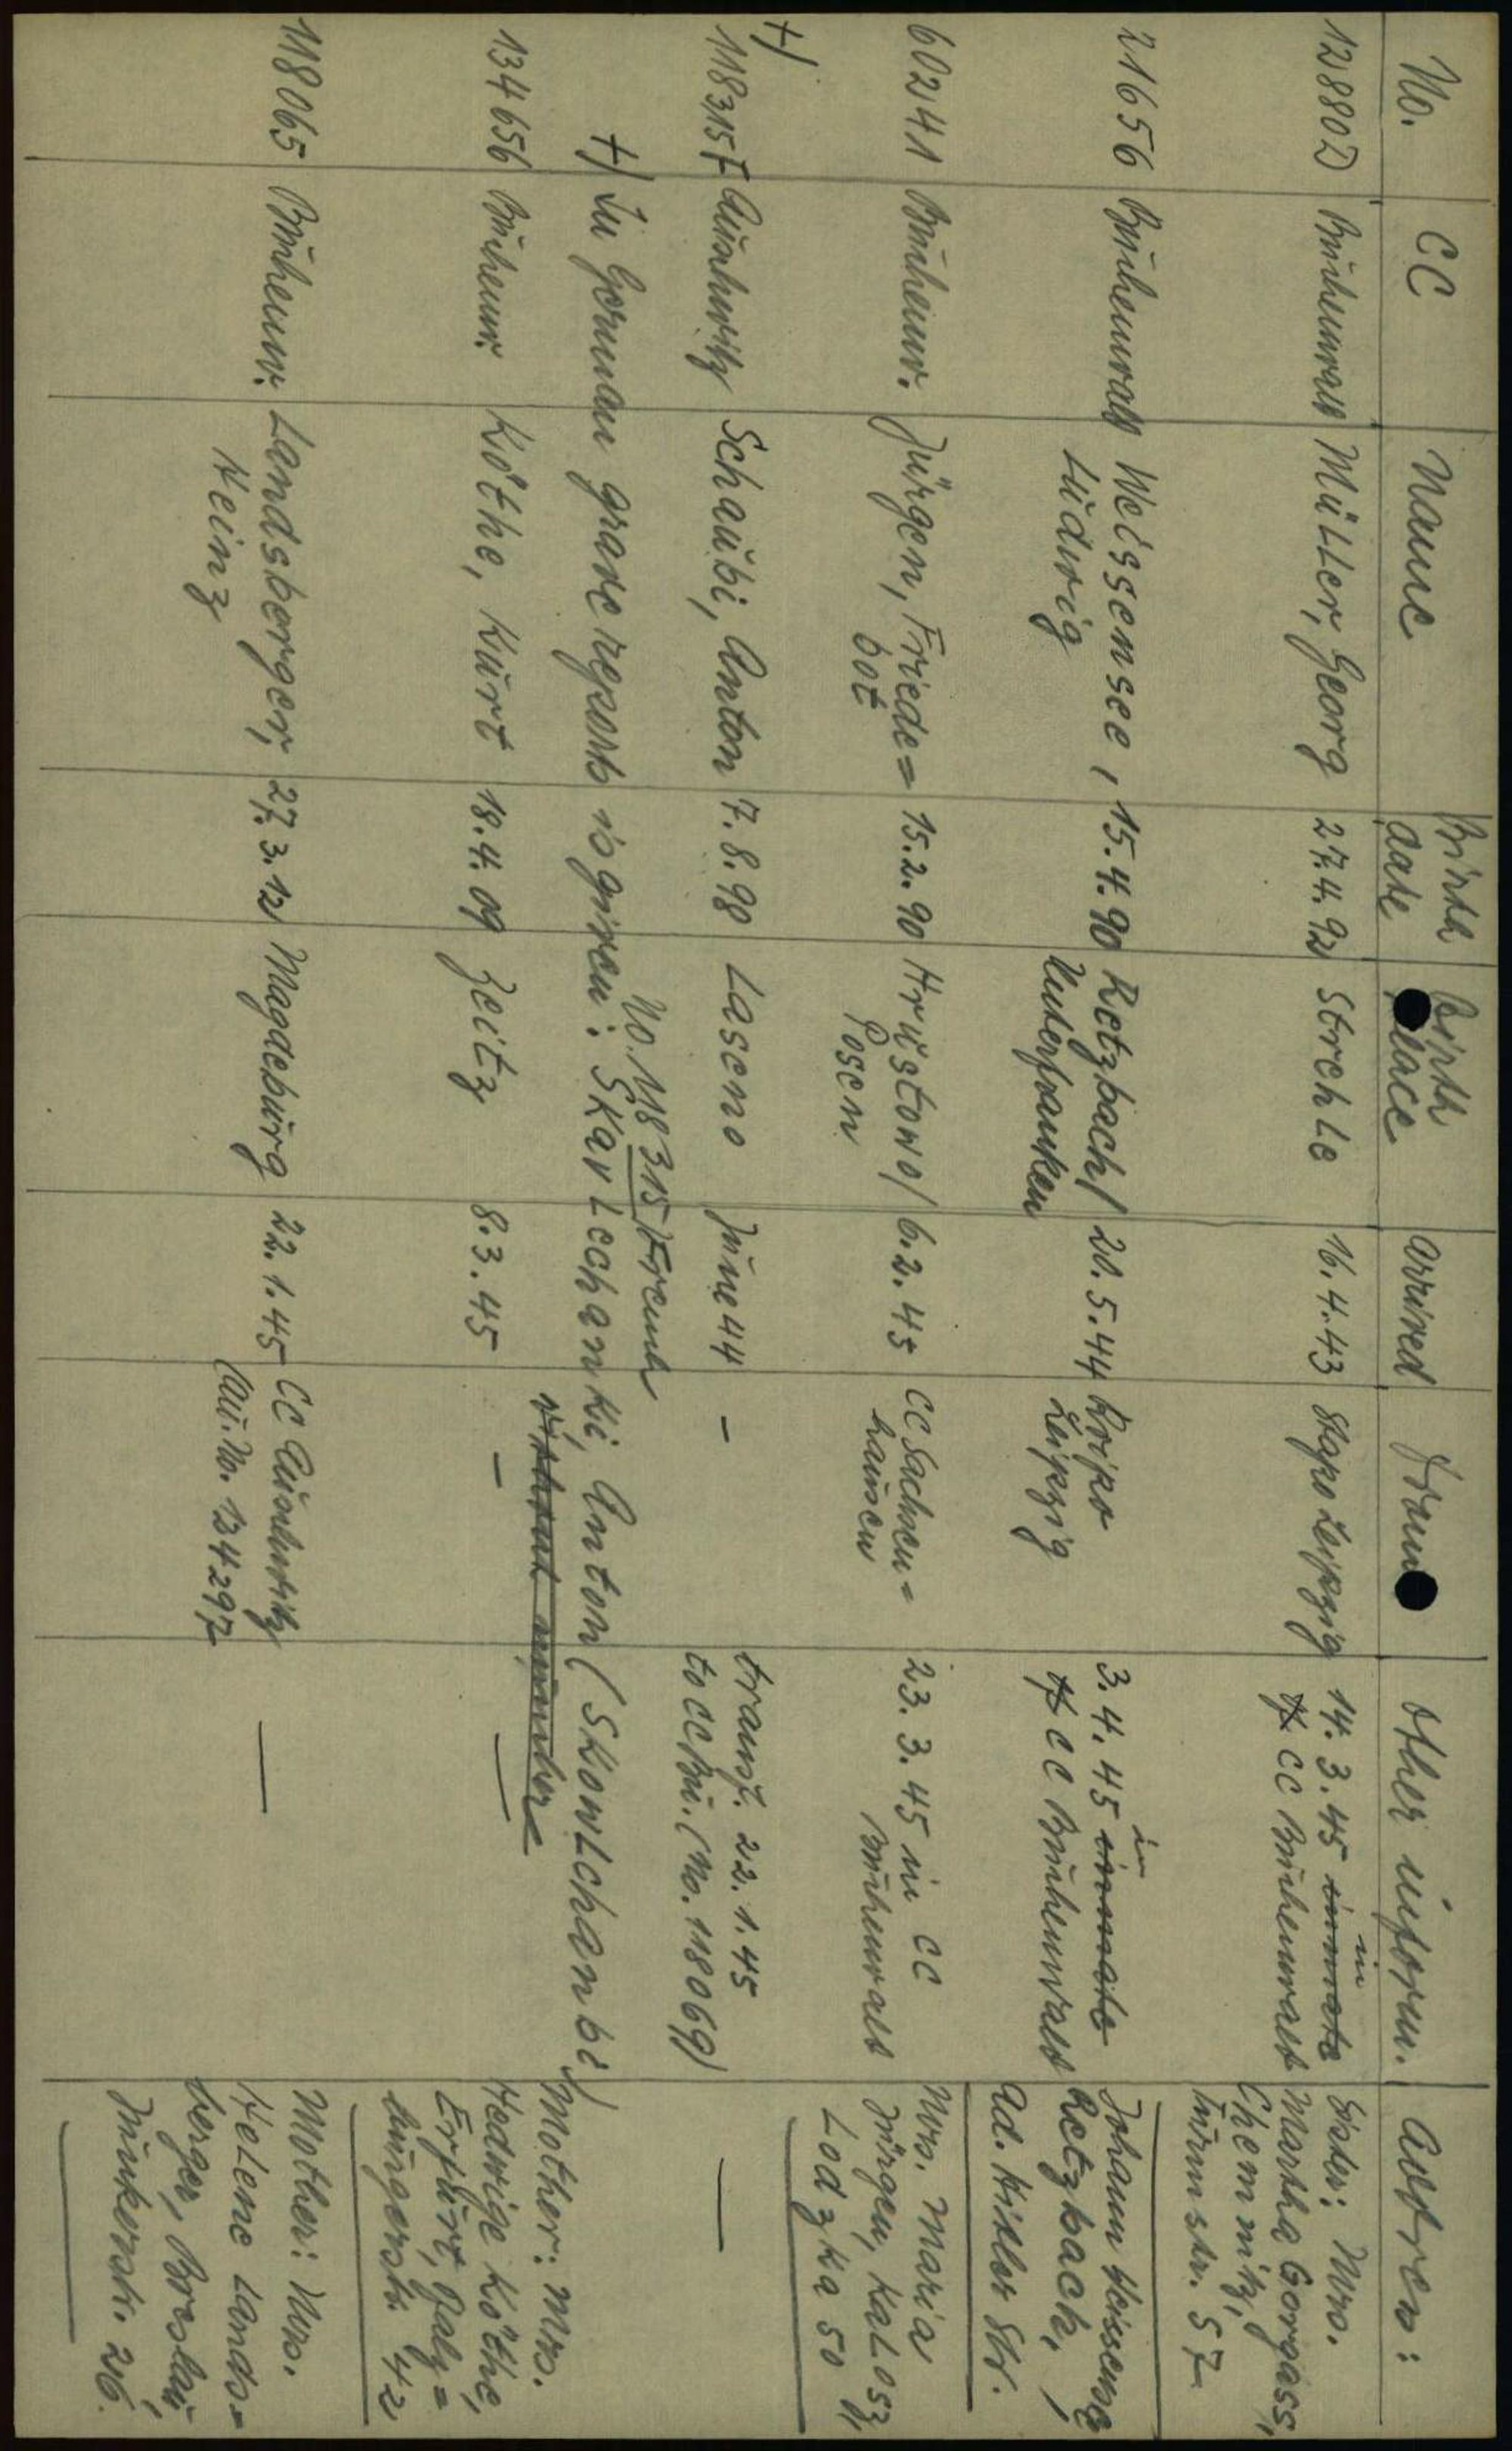 No. CC Name Birth date Birth place arrived From other inform. Address:
12880 Buchenwald Müller, Georg 27.4.92 Strehle 16.4.43 Stapo Leipzig 14.3.45 inmate in CC Buchenwald Sister: Mrs. Martha Gorgass, Chemnitz, Turmstr. 57
21656 Buchenwald Weissensee, Ludwig 15.4.90 Retzbach/ Unterfranken 20.5.44 Kripo Leipzig 3.4.45 inmate in CC Buchenwald Johann Weissensee Retzbach, Ad. Hitler Str.
60241 Buchenw. Jürgen, Friede= bot 15.2.90 Hrustowo/ Posen 6.2.45 CC Sachsen= hausen 23.3.45 in CC Buchenwald Mrs. Maria Jürgen, Kalosz, Lodzka 50
+) 118315 F Auschwitz Schaubi, Anton 7.8.98 Laseno June 44 – transf. 22.1.45 to CC Bu. (No. 118069) —
No. 118315/French
+) In German grave reports is given: Skavlechanki, Anton (Skowlchanbi)
without number
134656 Buchenw. Köthe, Kurt 18.4.09 Zeitz 8.3.45 – — Mother: Mrs. Hedwige Köthe, Erfurt, Salz= ungerstr. 42
118065 Buchenw. Landsberger, Heinz 27.3.12 Magdeburg 22.1.45 CC Auschwitz (Au. No. 134297 — Mother: Mrs. Helene Lands= berger, Breslau, Junkerstr. 26.